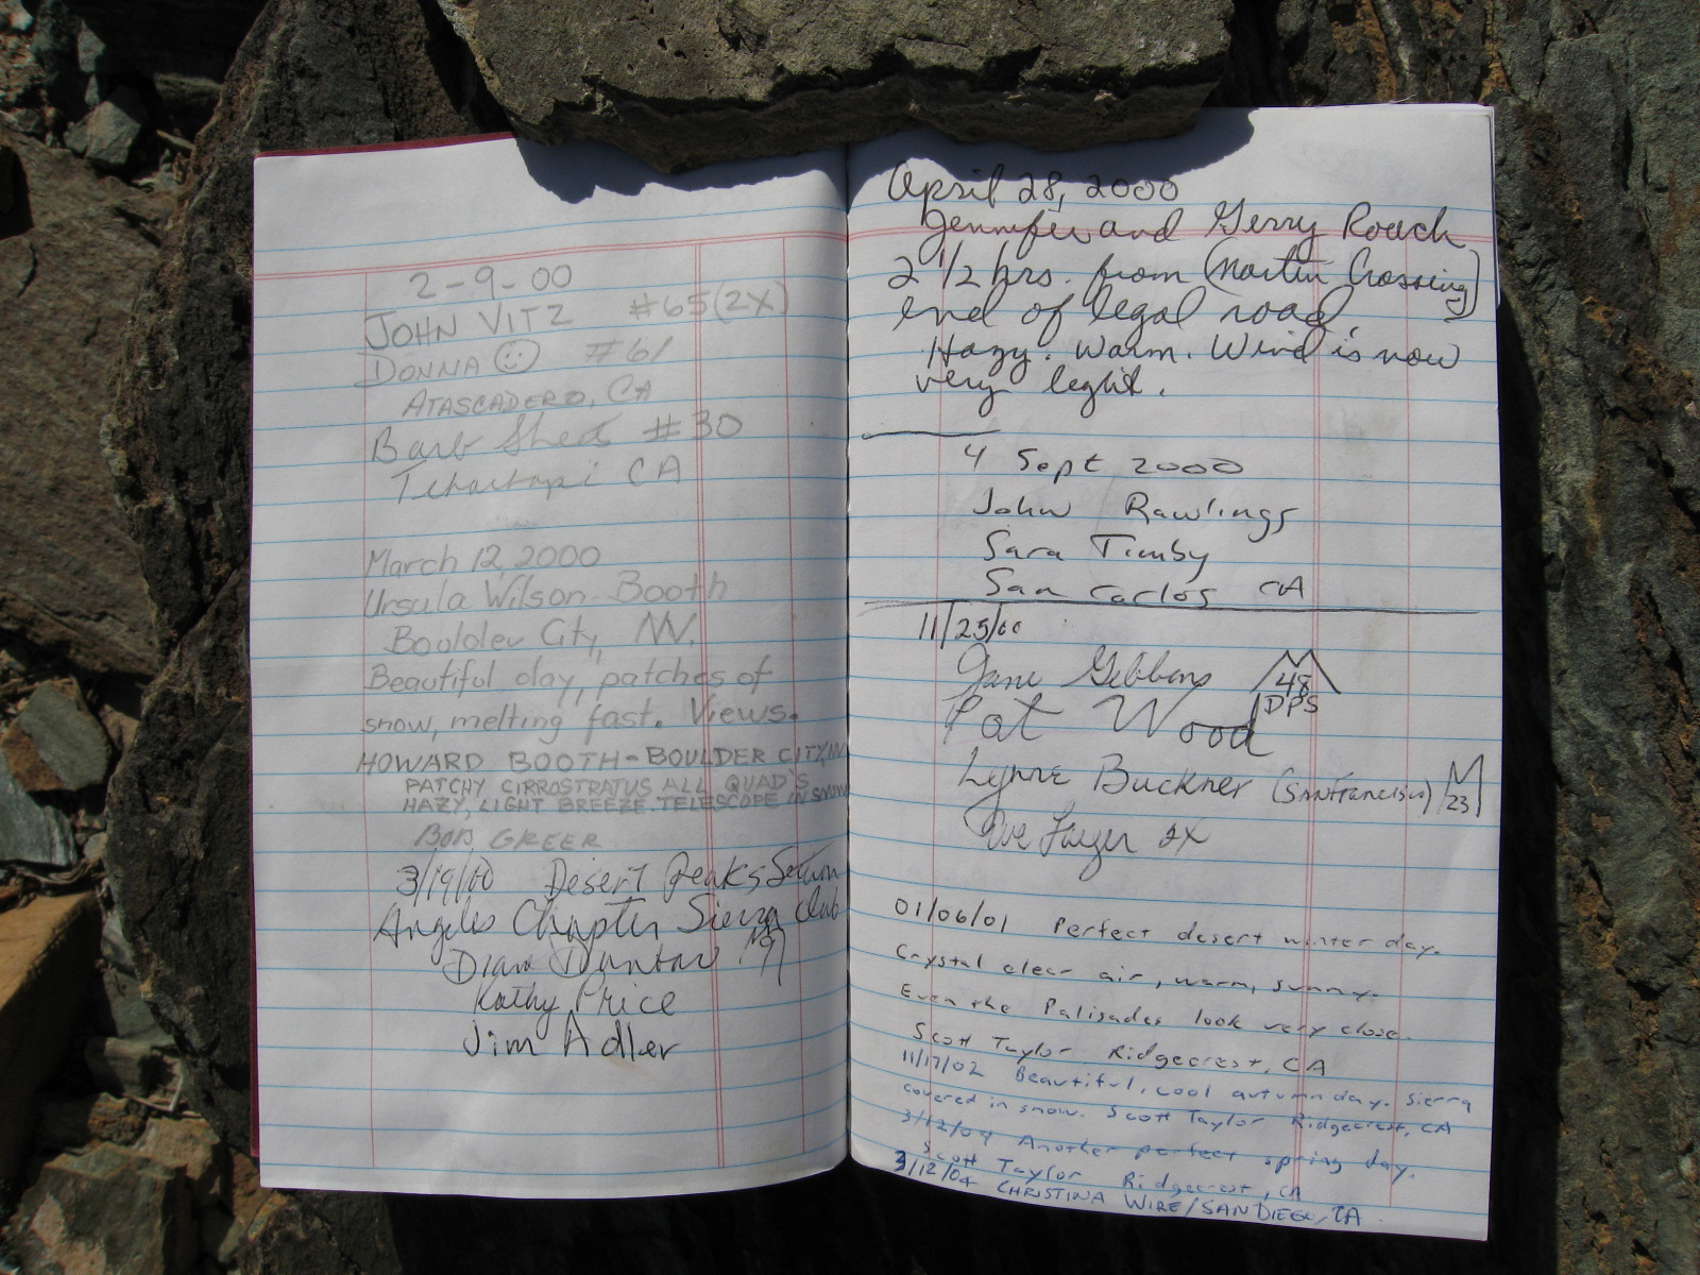 2-9-00
JOHN VITZ #65(2X)
DONNA #61
ATASCADERO, CA
Barb #30
CA
March 12, 2000
Ursula Wilson-Booth
Boulder City, NV.
Beautiful day, patches of
snow, melting fast. Views.
HOWARD BOOTH-BOULDER CITY, NV
PATCHY CIRROSTRATUS ALL QUAD'S
HAZY, LIGHT BREEZE. TELESCOPE IN SNOW
BOB GREER
3/19/00 Desert Peaks Section
Angeles Chapter Sierra Club
Dian
Kathy Price
Jim Adler
April 28, 2000
Jennifer and Gerry Roach
2 1/2 hrs. from (Martin Crossing)
end of legal road.
Hazy. Warm. Wind is now
very light.
4 Sept 2000
John Rawlings
Sara Timby
San Carlos CA
11/25/00
Jane Gibbons 48
Pat Wood DPS
Lynne Buckner (San Francisco) 23
2X
01/06/01 Perfect desert winter day.
Crystal clear air, warm, sunny.
Even the Palisades look very close.
Scott Taylor Ridgecrest, CA
11/17/02 Beautiful, cool autumn day. Sierra
covered in snow. Scott Taylor Ridgecrest, CA
3/12/04 Another perfect spring day.
Scott Taylor Ridgecrest, CA
3/12/04 CHRISTINA WIRE/SAN DIEGO, CA